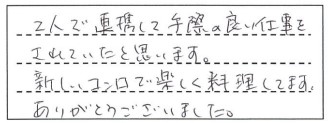 2人で連携して手際の良い仕事を
されていたと思います。
新しいコンロで楽しく料理してます。
ありがとうございました。